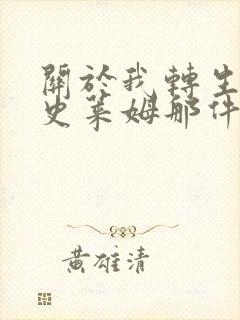 關於我轉生
史萊姆那件
黃雄清